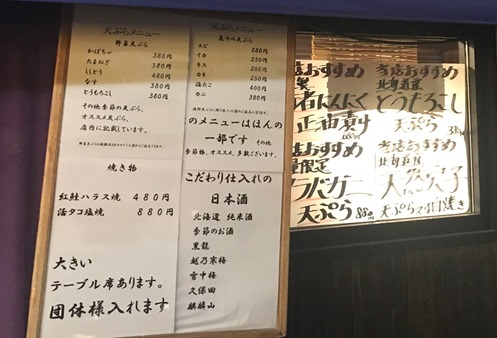 天ぷらメニュー
野菜天ぷら
かぼちゃ 380円
たまねぎ 380円
ししとう 480円
なす 380円
とうもろこし 380円
その他季節の天ぷら、
オススメ天ぷら、
店内に記載しています。
焼き物
紅鮭ハラス焼 480円
活タコ塩焼 880円
大きい
テーブル席あります。
団体様入れます
天ぷらメニュー
魚介の天ぷら
エビ 280円
イカ 250円
キス 250円
カキ 250円
活たこ 400円
カニ 380円
のメニューはほんの
一部です その他
季節物、オススメ、多数ございます。
こだわり仕入れの
日本酒
北海道 純米酒
季節のお酒
黒龍
越乃寒梅
雪中梅
久保田
麒麟山
おすすめ
にんにく
正油漬け
おすすめ
限定
天ぷら 880円
当店おすすめ
北海道産
とうもろこし
天ぷら 380円
当店おすすめ
北海道産
天然穴子
天ぷら
焼き